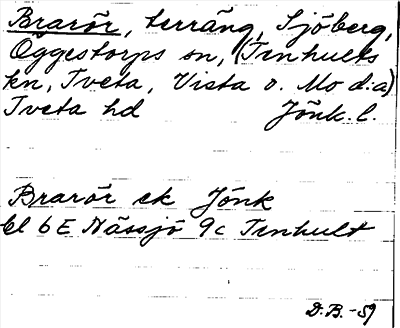 Brarör, terräng, Sjöberg,
Öggestorps sn, (Tenhults
kn, Tveta, Vista o. Mo d:a)
Tveta hd Jönk. l.
Brarör ek Jönk
bl 6E Nässjö 9c Tenhult
D.B.-59